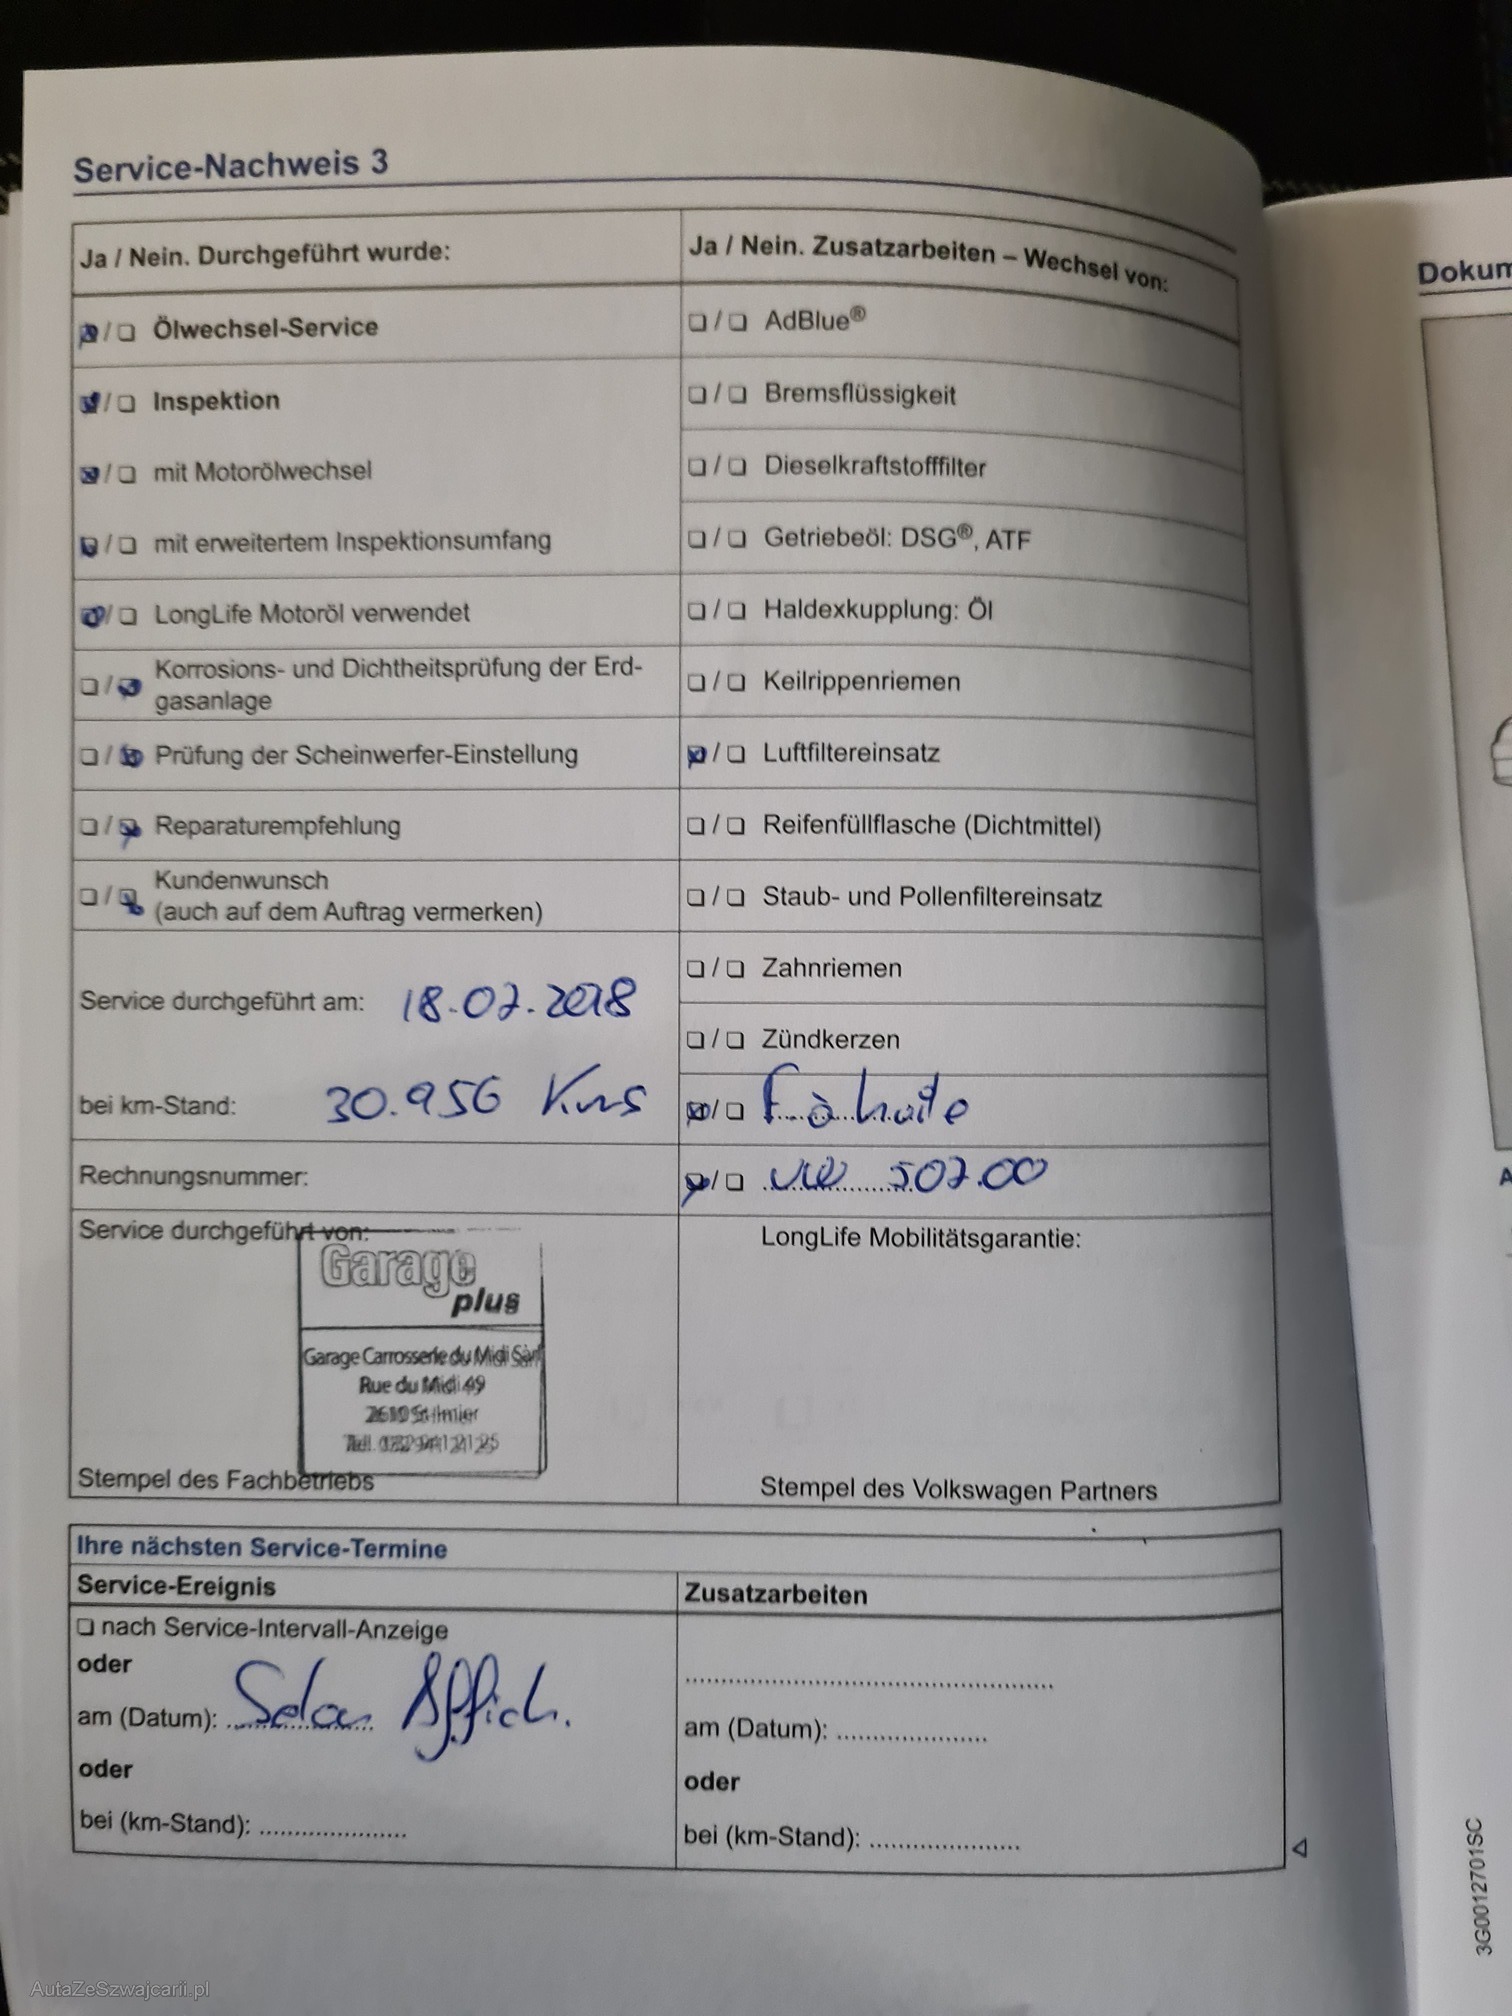 Service-Nachweis 3
Ja / Nein. Durchgeführt wurde:
Ölwechsel-Service
Inspektion
mit Motorölwechsel
mit erweitertem Inspektionsumfang
LongLife Motoröl verwendet
Korrosions- und Dichtheitsprüfung der Erd-
gasanlage
Prüfung der Scheinwerfer-Einstellung
Reparaturempfehlung
Kundenwunsch
(auch auf dem Auftrag vermerken)
Service durchgeführt am: 18.07.2018
bei km-Stand: 30.956 Kms
Rechnungsnummer:
Service durchgeführt von:
Garage
plus
Garage Carrosserie du Midi Sàrl
Rue du Midi 49
2610 St-Imier
Tél.
Stempel des Fachbetriebs
Ja / Nein. Zusatzarbeiten – Wechsel von:
AdBlue®
Bremsflüssigkeit
Dieselkraftstofffilter
Getriebeöl: DSG®, ATF
Haldexkupplung: Öl
Keilrippenriemen
Luftfiltereinsatz
Reifenfüllflasche (Dichtmittel)
Staub- und Pollenfiltereinsatz
Zahnriemen
Zündkerzen
F à huile
VW 507.00
LongLife Mobilitätsgarantie:
Stempel des Volkswagen Partners
Ihre nächsten Service-Termine
Service-Ereignis
nach Service-Intervall-Anzeige
oder
am (Datum): Selon Affich.
oder
bei (km-Stand): ......................
Zusatzarbeiten
......................................................
am (Datum): ......................
oder
bei (km-Stand): ......................
Dokum
3G0012701SC
AutaZeSzwajcarii.pl